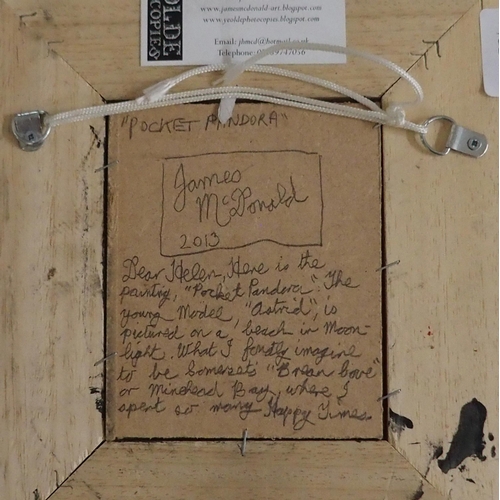 OLDE
COPIES
www.jamesmcdonald-art.blogspot.com
www.yeoldephotocopies.blogspot.com
Email: jbmcd@hotmail.co.uk
Telephone:
"POCKET PANDORA"
James
McDonald
2013
Dear Helen, Here is the
painting, "Pocket Pandora". The
young Model, "Astrid", is
pictured on a beach in Moon-
light. What I fondly imagine
to be Somerset's "Brean Cove"
or Minehead Bay, where I
spent so many Happy Times.